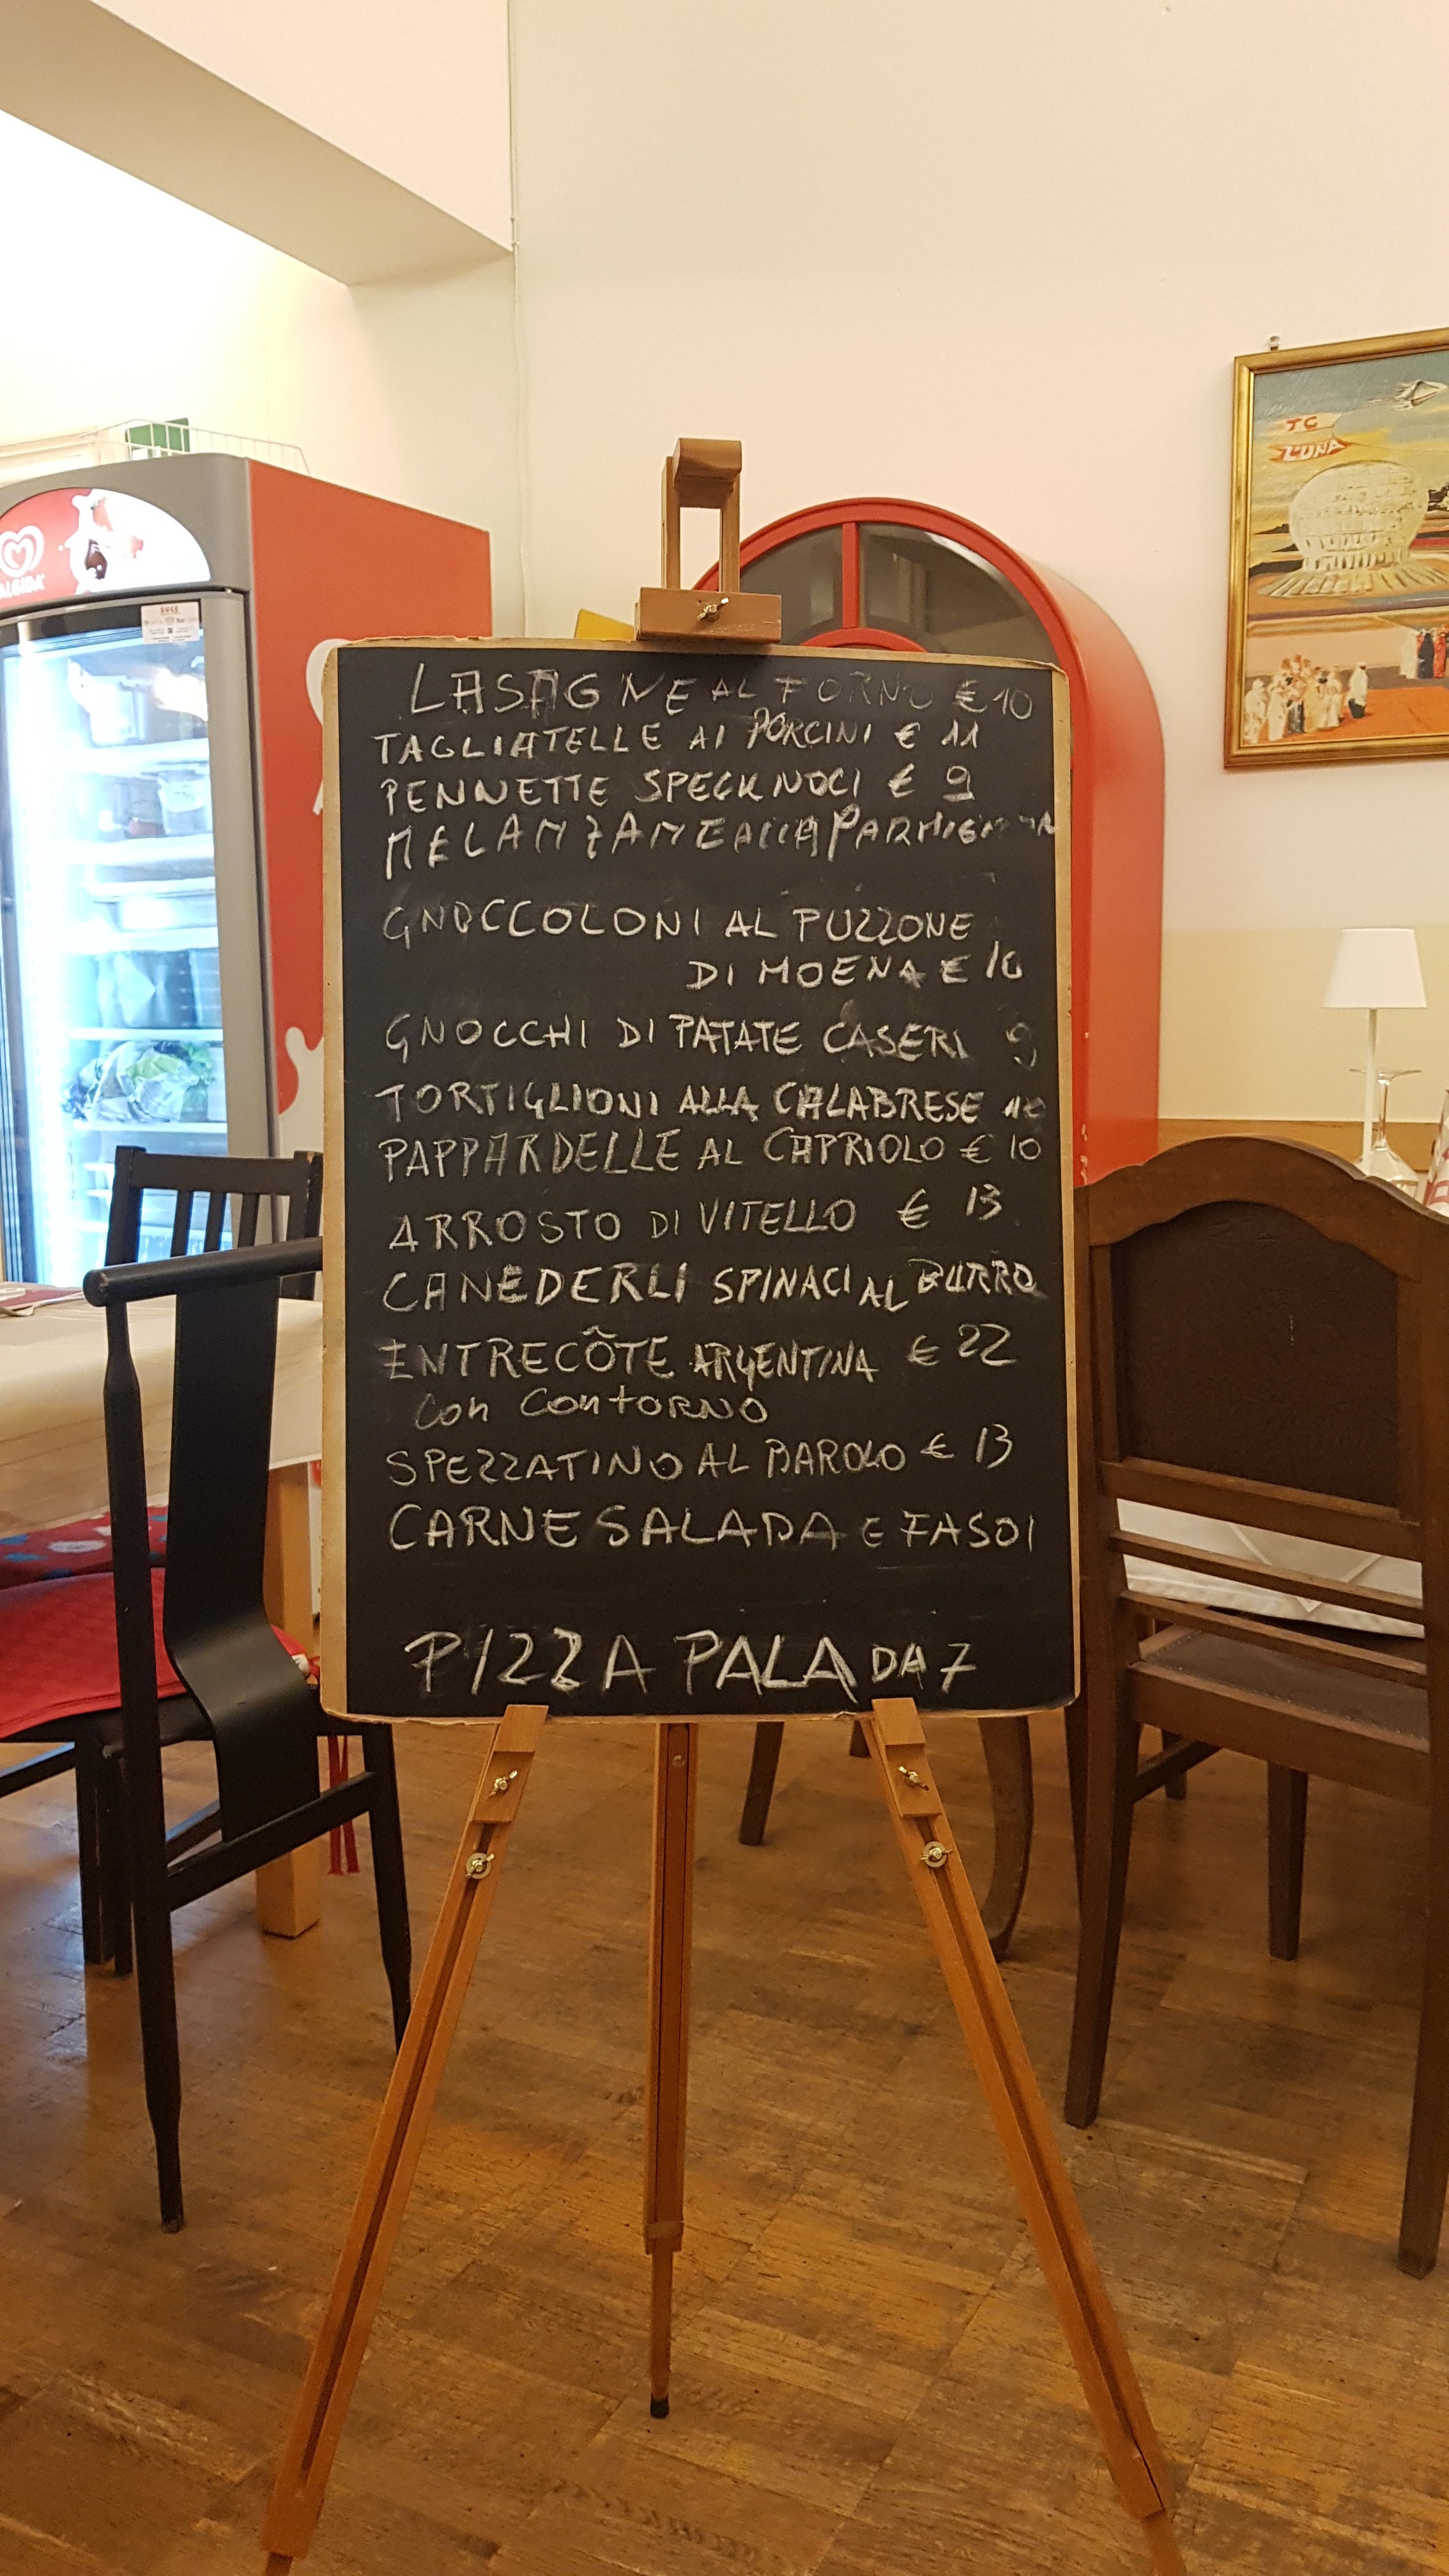 LASAGNE AL FORNO € 10
TAGLIATELLE AI PORCINI € 11
PENNETTE SPECK NOCI € 9
MELANZANE ALLA
GNOCCOLONI AL PUZZONE
DI MOENA € 10
GNOCCHI DI PATATE CASERI 9
TORTIGLIONI ALLA CALABRESE 10
PAPPARDELLE AL CAPRIOLO € 10
ARROSTO DI VITELLO € 13
CANEDERLI SPINACI AL BURRO
ENTRECÔTE ARGENTINA € 22
Con Contorno
SPEZZATINO AL BAROLO € 13
CARNE SALADA E FASOI
PIZZA PALA DA 7
TC
L'UNA
ALGIDA